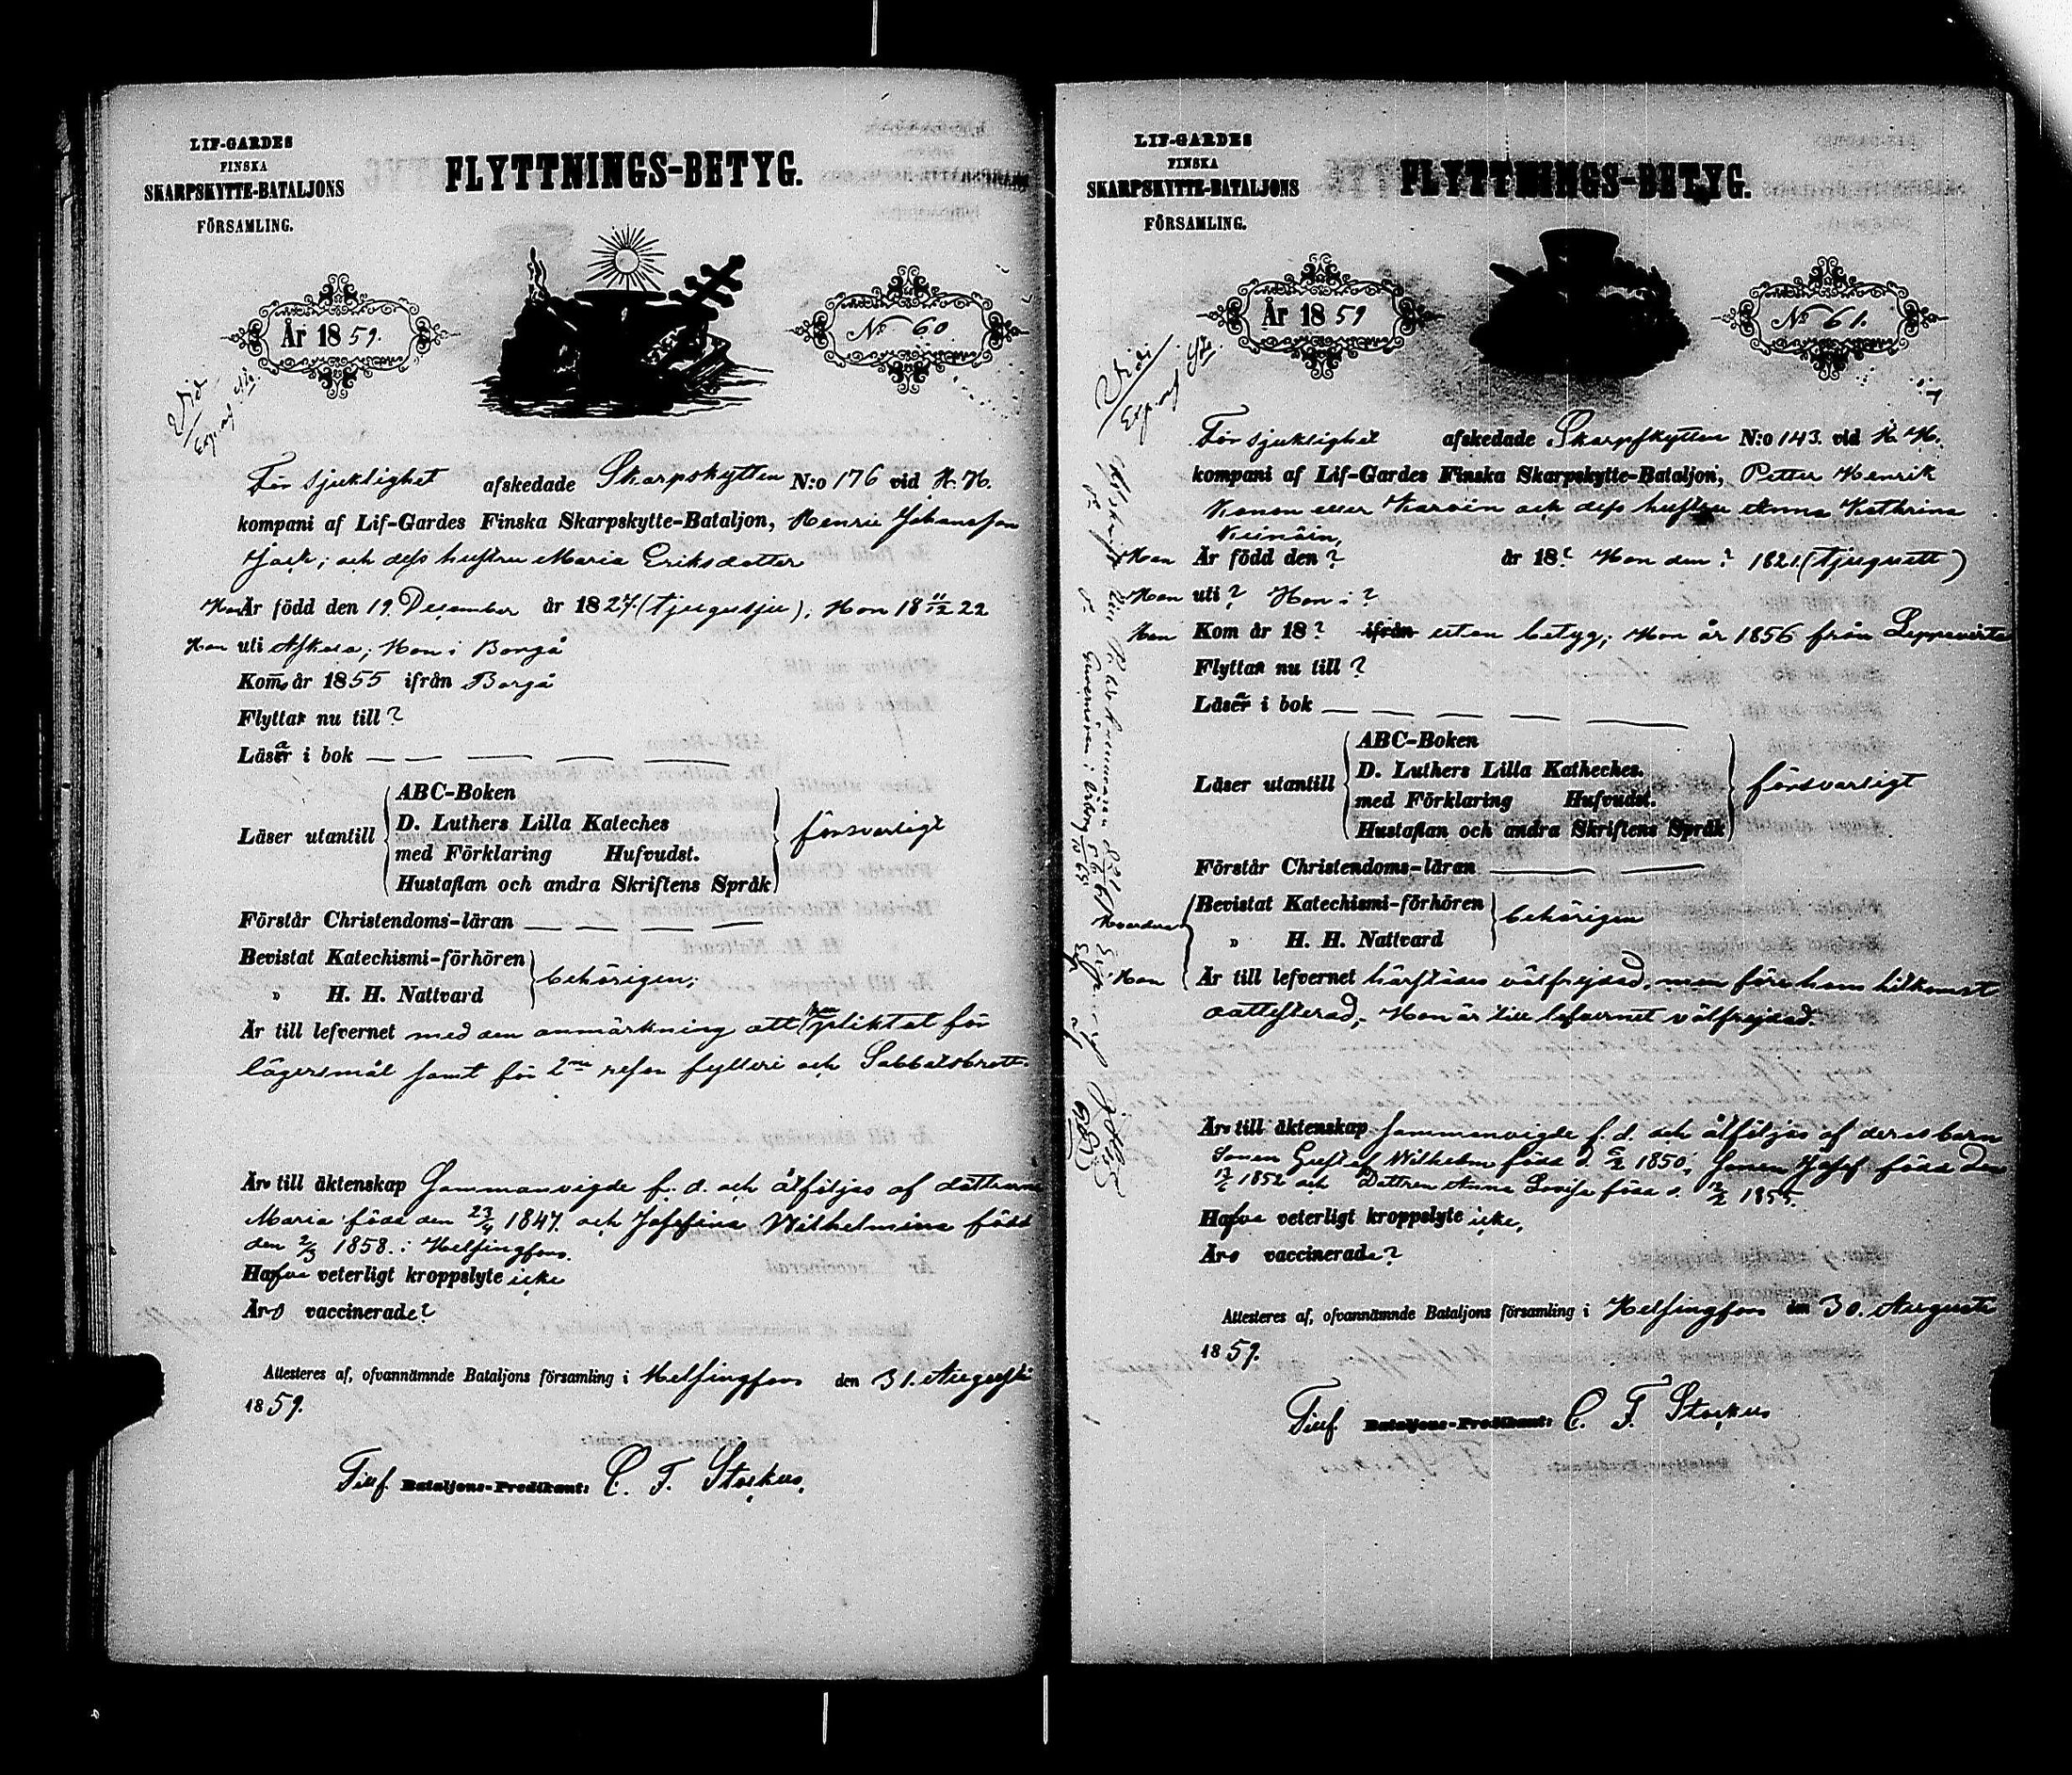 LIF-GARDES
FINSKA
SKARPSKYTTE-BATALJONS
FÖRSAMLING.
FLYTTNINGS-BETYG.
År 1859.
No 60
För sjuklighet afskedade Skarpskytten N:o 176 vid H. K.
kompani af Lif-Gardes Finska Skarpskytte-Bataljon, Henric Johansson
och dess hustru Maria Eriksdotter
Han Är född den 19. December år 1827. (tjugusju), Hon 18 11/12 22
Han uti Askola; Hon i Borgå
Kom år 1855 ifrån Borgå
Flytta nu till ?
Läsa i bok — — — — —
Läser utantill
ABC-Boken
D. Luthers Lilla Kateches
med Förklaring Hufvudst.
Hustaflan och andra Skriftens Språk
försvarligt
Förstår Christendoms-läran — — — —
Bevistat Katechismi-förhören
" H. H. Nattvard
behörigen;
Är till lefvernet med den anmärkning att han pliktat för
lägersmål samt för 2ne resor fylleri och Sabbatsbrott.
Äro till äktenskap Sammanvigde f. d. och åtföljas af döttrarne
Maria född den 23/4 1847. och Josefina Wilhelmina född
den 2/3 1858. i Helsingfors.
Hafva veterligt kroppslyte icke
Äro vaccinerade?
Attesteres af, ofvannämnde Bataljons församling i Helsingfors den 31. Augusti
1859.
Tiuf. Bataljons-Predikant: C. F. Storkus,
LIF-GARDES
FINSKA
SKARPSKYTTE-BATALJONS
FÖRSAMLING.
FLYTTNINGS-BETYG.
År 1859
No 61.
För sjuklighet afskedade Skarpskytten N:o 143. vid H. K.
kompani af Lif-Gardes Finska Skarpskytte-Bataljon, Petter Henrik
Konon eller Karvin och dess hustru Anna Kathrina
Keinäin,
Han Är född den ? år 18? Hon den ? 1821. (tjuguett)
Han uti ? Hon i ?
Han Kom år 18? ifrån utan betyg; Hon år 1856 från Leppävirta
Flytta nu till ?
Läsa i bok — — — — —
Läser utantill
ABC-Boken
D. Luthers Lilla Katheches.
med Förklaring Hufvudst.
Hustaflan och andra Skriftens Språk
försvarligt
Förstår Christendoms-läran — —
Bevistat Katechismi-förhören
" H. H. Nattvard
behörigen
Han Är till lefvernet härstädes välfrejdad, men före hans hitkomst
oattesterad; Hon är till lefvernet välfrejdad.
Äro till äktenskap Sammanvigde f. d. och åtföljas af deras barn
Sonen Gustaf Wilhelm född d. 5/2 1850; Sonen Josef född den
1852 och Dottren Anna Lovisa född d. 12/2 1855.
Hafva veterligt kroppslyte icke,
Äro vaccinerade?
Attesteres af, ofvannämnde Bataljons församling i Helsingfors den 30. Augusti
1859.
Tiuf. Bataljons-Predikant: C. F. Storkus